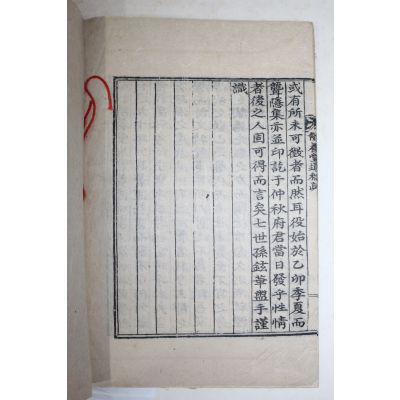 或有所未可徵者而然耳役始於乙卯季夏而
聾隱集亦並印訖于仲秋府君當日發乎性情
者後之人固可得而言矣七世孫鉉華盥手謹
識